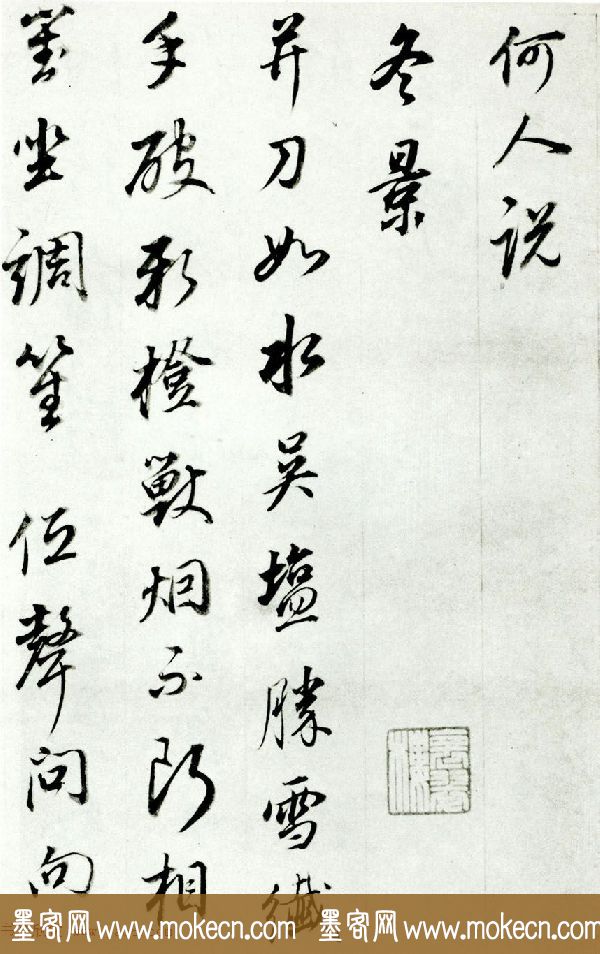 何人说
冬景
并刀如水吴塩勝雪纖
手破新橙獸烟不断相
對坐調笙 低聲問向
墨客网 www.mokecn.com 墨客网 www.mokecn.com